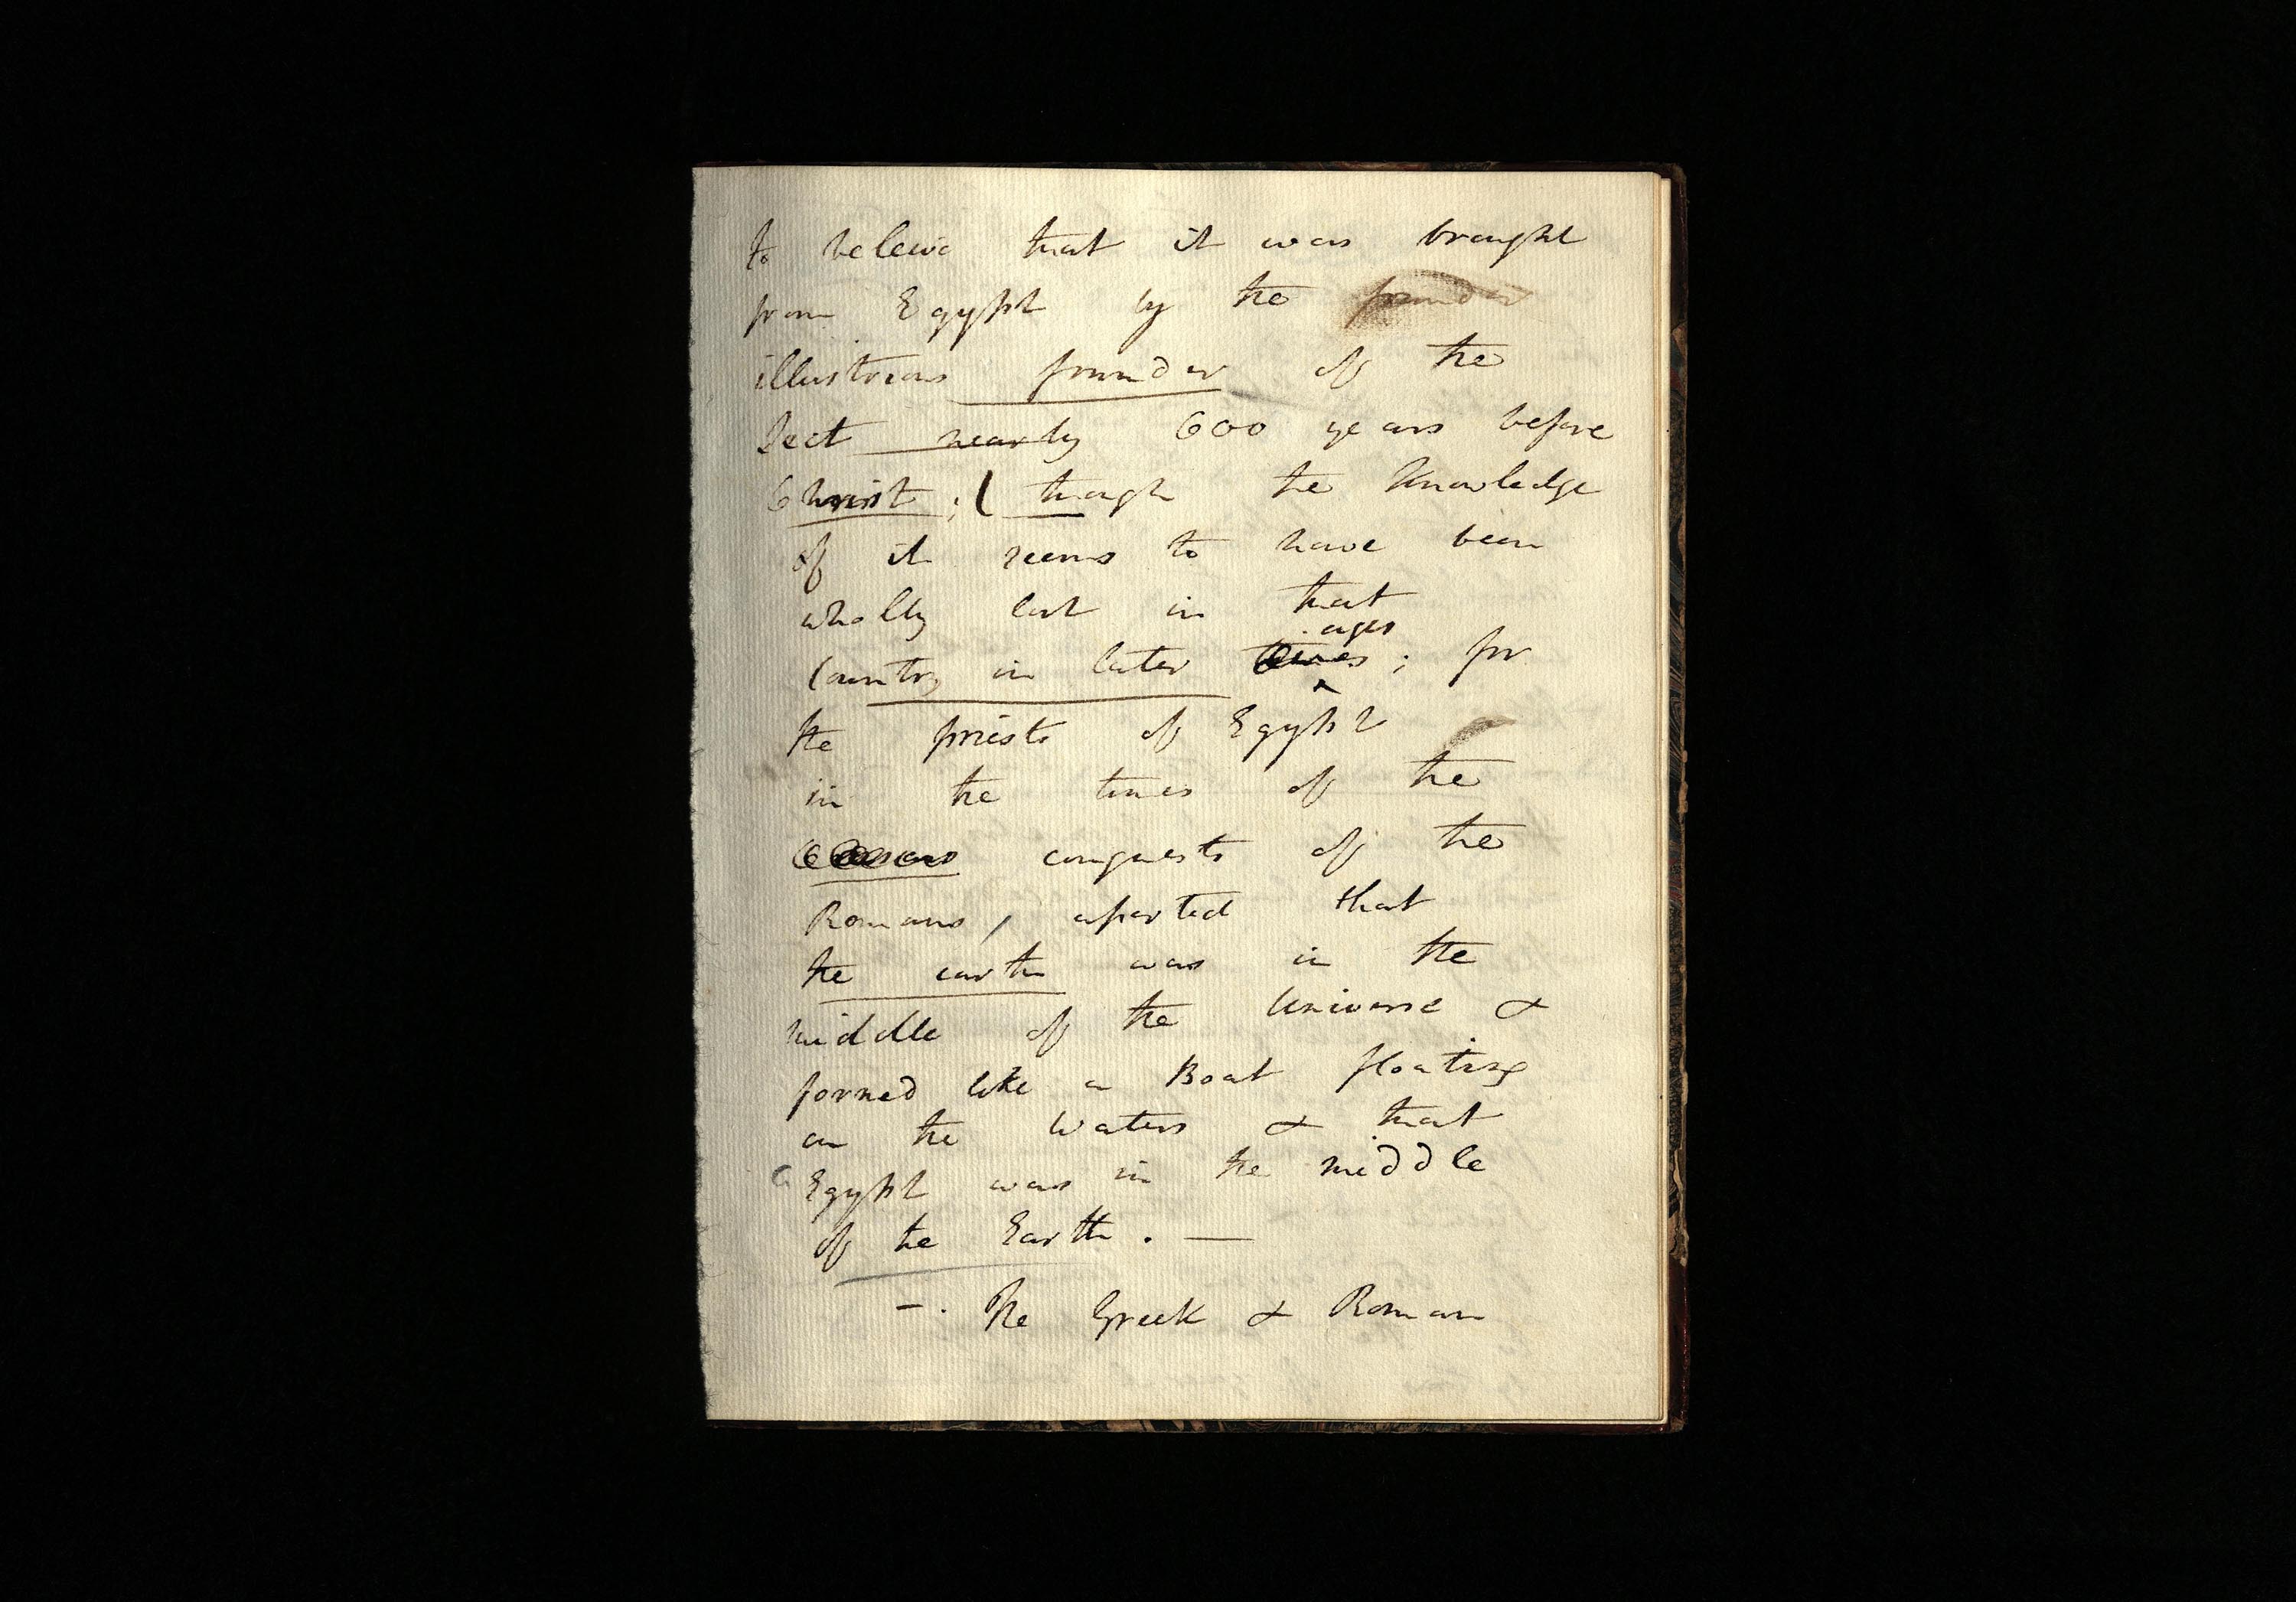 to beleive that it was brought
from Egypt by the founder
illustrious founder of the
Sect nearly 600 years before
Christ; ( though the knowledge
of it seems to have been
wholly lost in that
ages
Country in later times; for
the priests of Egypt
in the times of the
conquests of the
Romans, asserted that
the earth was in the
middle of the Universe &
formed like a Boat floating
on the Waters & that
Egypt was in the middle
of the Earth. —
—. The Greek & Roman